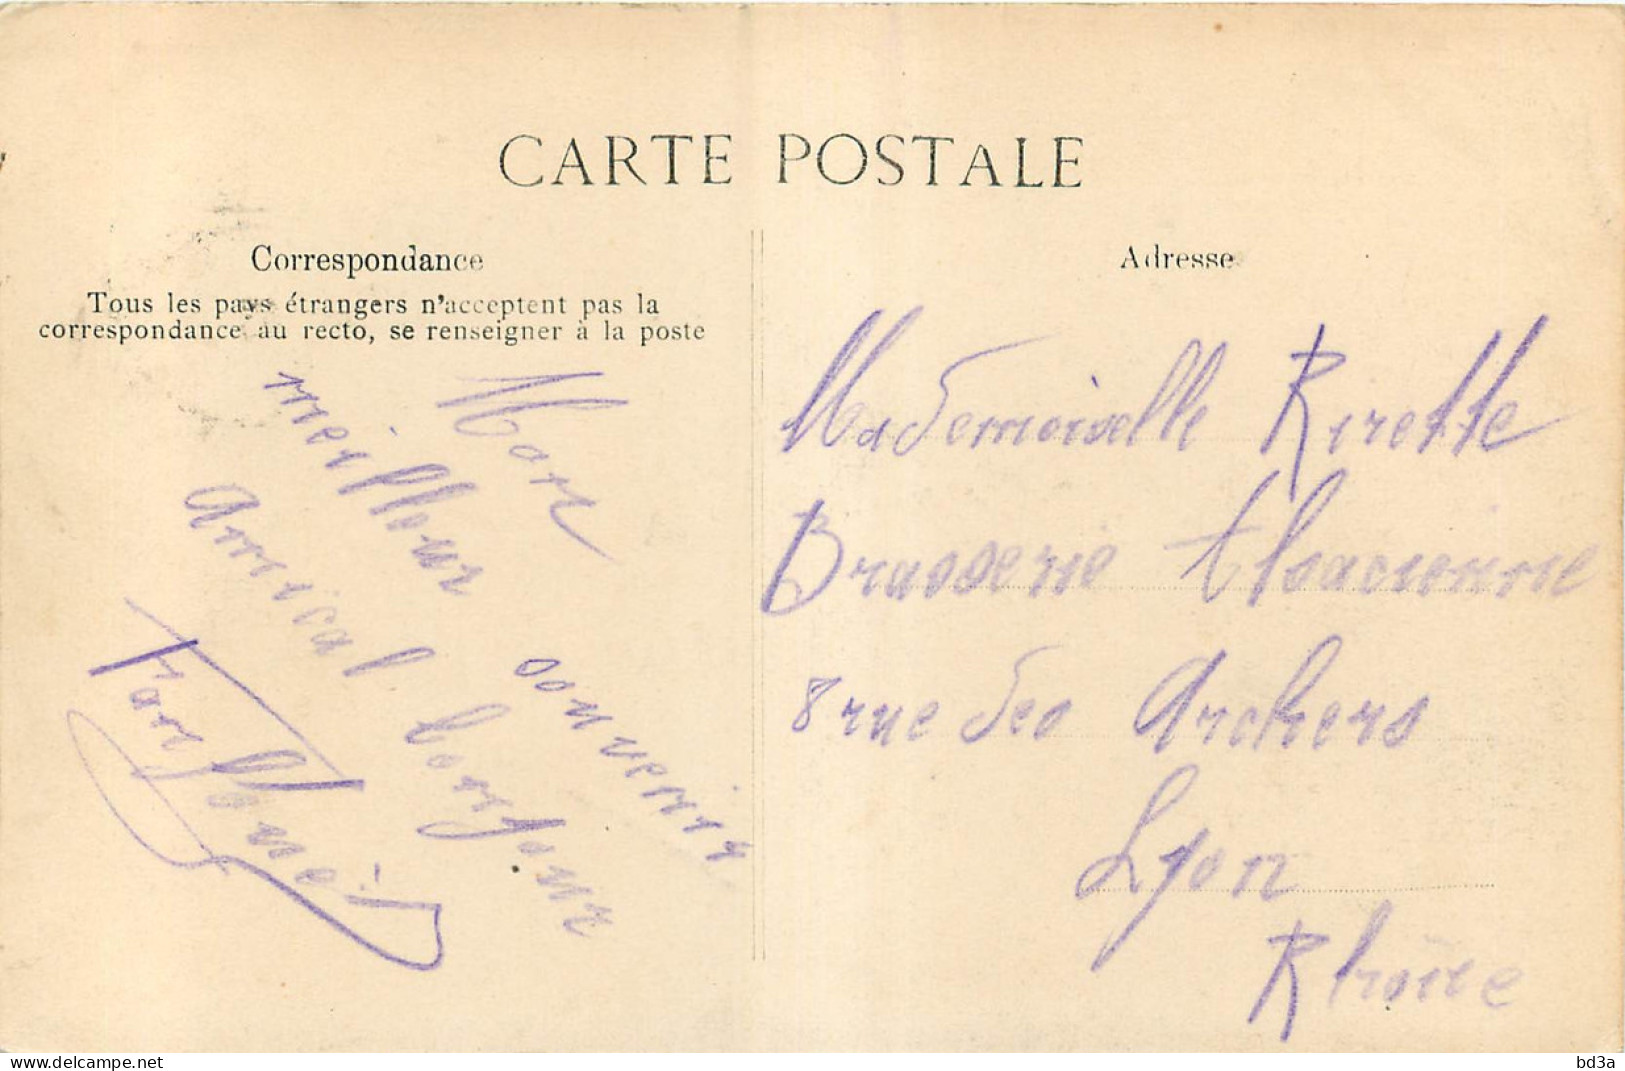 CARTE POSTALE
Correspondance
Tous les pays étrangers n'acceptent pas la
correspondance au recto, se renseigner à la poste
Mon
meilleur souvenir
Amical bonjour
Adresse
Mademoiselle Rirette
Brasserie Alsacienne
8 rue des Archers
Lyon
Rhône
www.delcampe.net
bd3a